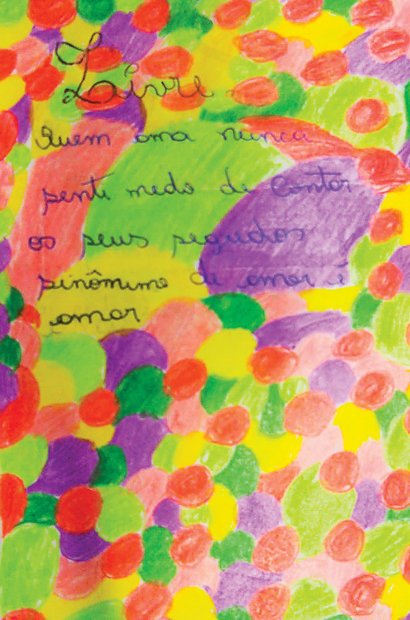 Livre
Quem ama nunca
senti medo de contar
os seus segudos
sinônimo de amor é
amar